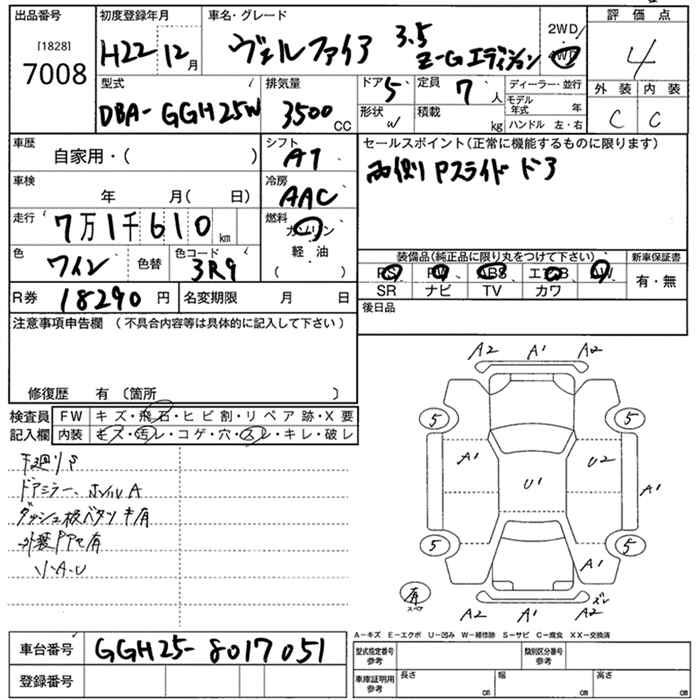 出品番号 初度登録年月 車名・グレード 2WD/ 評価点
[1828]
7008
H22 12月 ヴェルファイア 3.5 Z-Gエディション 4WD 4
型式 排気量 ドア 5 定員 7人 ディーラー・並行 外装 内装
DBA-GGH25W 3500CC 形状 W 積載 kg モデル年式 年 C C
ハンドル 左・右
車歴 シフト セールスポイント(正常に機能するものに限ります)
自家用・( ) AT
両側Pスライドドア
車検 冷房
年 月( 日) AAC
走行 7万1千610km 燃料 ガソリン
軽油
( )
色 ワイン 色替 色コード 3R9
装備品(純正品に限り丸をつけて下さい) 新車保証書
PS PW ABS エアB AW 有・無
SR ナビ TV カワ
R券 18290円 名変期限 月 日
後日品
注意事項申告欄 (不具合内容等は具体的に記入して下さい)
修復歴 有 〔箇所 〕
検査員 FW キズ・飛石・ヒビ割・リペア跡・X要
記入欄 内装 キズ・汚レ・コゲ・穴・スレ・キレ・破レ
下廻りS
ドアミラー、ホイルA
ダッシュ板ベタツキ有
外装 有
小A・U
A2 A1 A2
5 5
A1 U2
U1 A1
5 5
A1
有
スペア
A2 A1 A2 ズレ
A-キズ E-エクボ U-凹み W-補修跡 S-サビ C-腐食 XX-交換済
車台番号 GGH25-8017051
登録番号
型式指定番号 参考 類別区分番号 参考
車庫証明用 参考 長さ cm 幅 cm 高さ cm